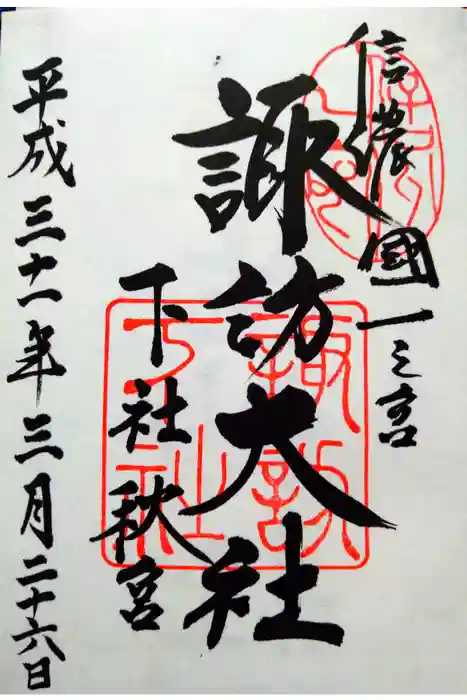 信濃國一之宮
諏訪大社
下社秋宮
平成三十一年三月二十六日